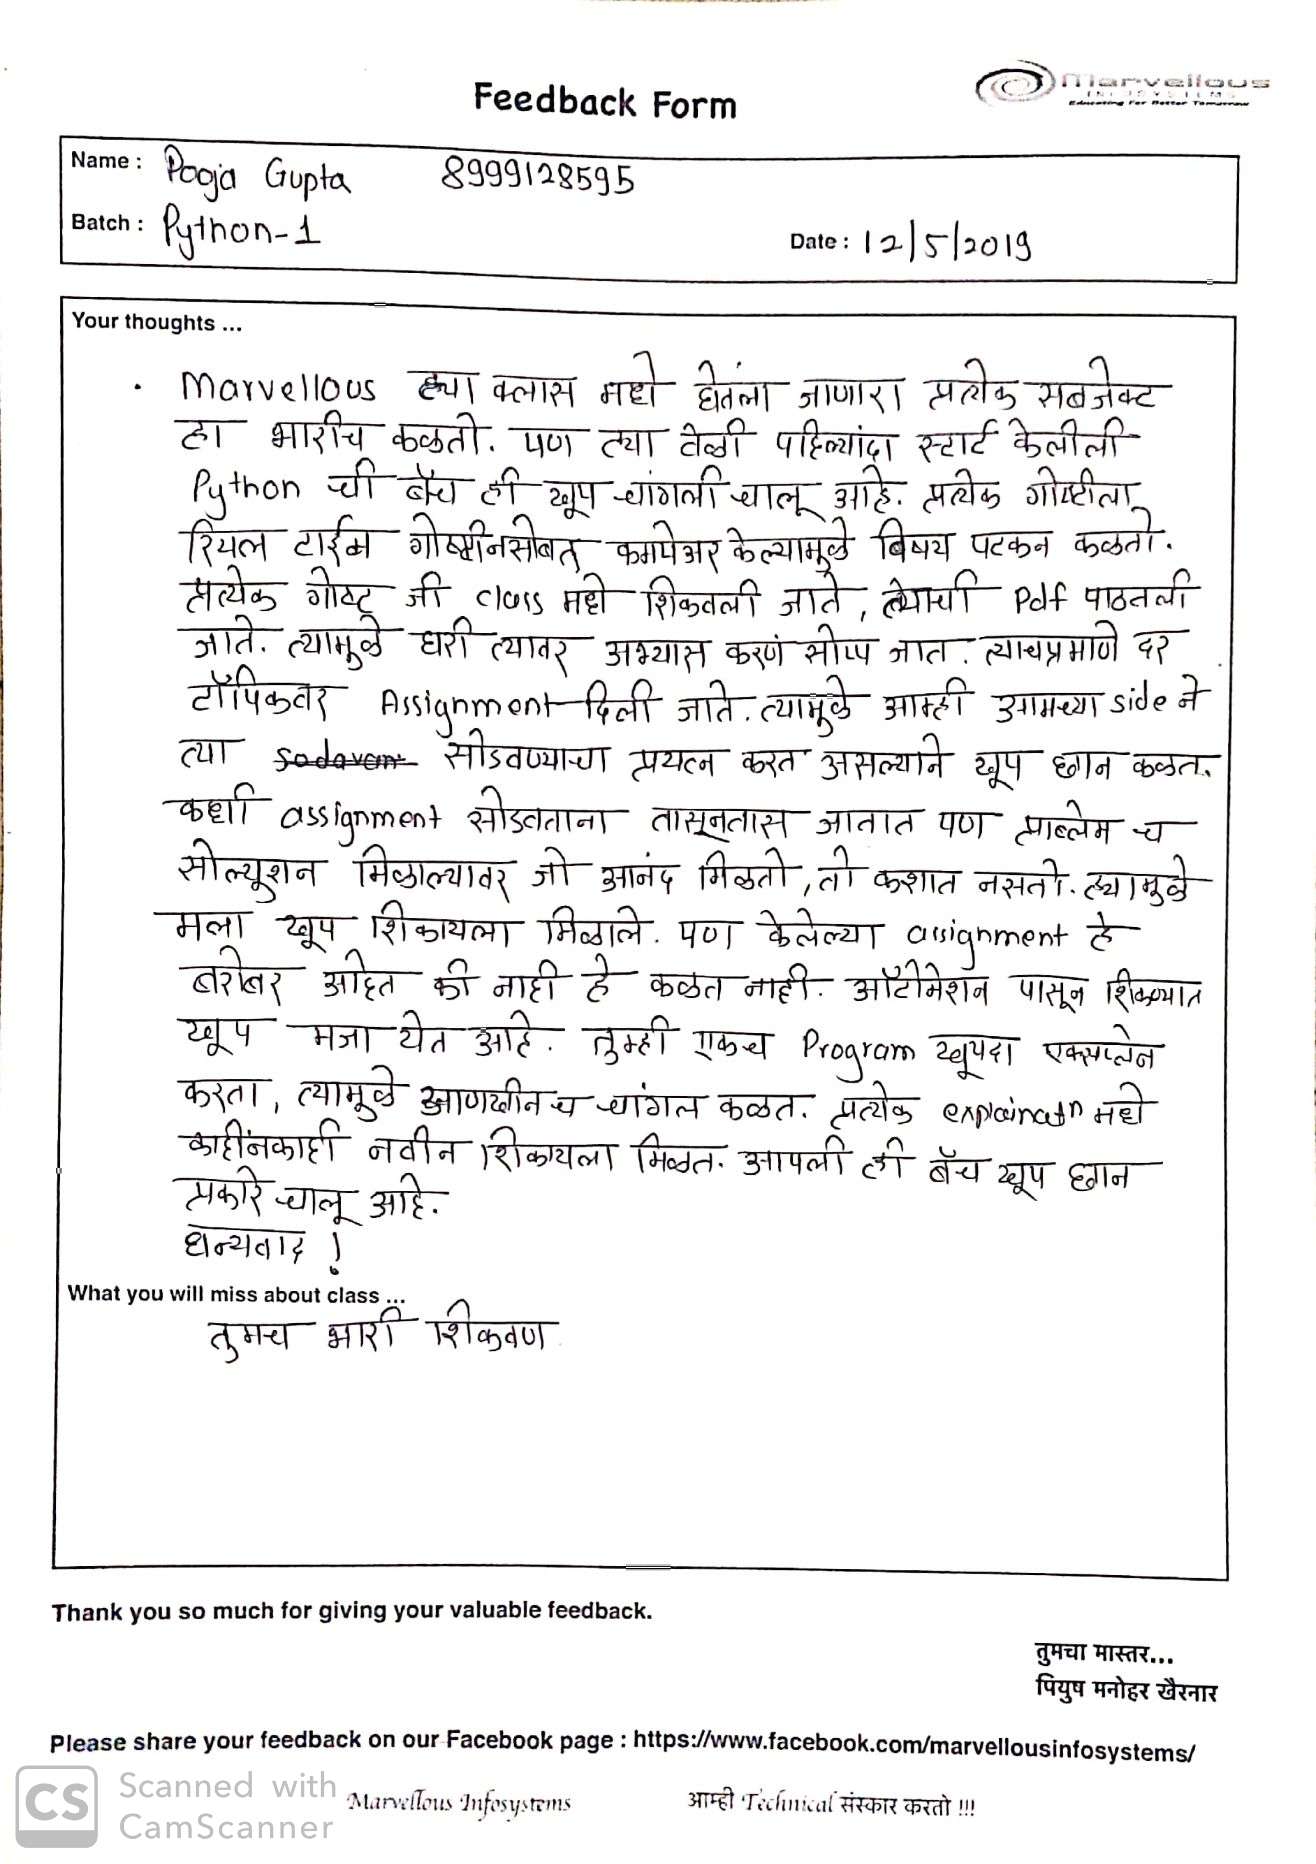 Feedback Form
Marvellous
INFOSYSTEMS
Educating For Better Tomorrow
Name : Pooja Gupta 8999128595
Batch : Python-1
Date : 12/5/2019
Your thoughts ...
Marvellous ह्या क्लास मध्ये घेतंला जाणारा प्रत्येक सबजेक्ट
हा भारीच कळतो. पण त्या वेळी पहिल्यांदा स्टार्ट केलीली
Python ची बॅच ही खूप चांगली चालू आहे. प्रत्येक गोष्टीला
रियल टाईम गोष्टींनसोबत कमपेअर केल्यामुळे विषय पटकन कळतो.
प्रत्येक गोष्ट जी class मध्ये शिकवली जाते, त्याची Pdf पाठवली
जाते. त्यामुळे घरी त्यावर अभ्यास करणं सोप्प जात. त्याचप्रमाणे दर
टॉपिकवर Assignment दिली जाते. त्यामुळे आम्ही आमच्या side ने
त्या सोडवण्याचा प्रयत्न करत असल्याने खूप छान कळत.
कधी assignment सोडवताना तासूनतास जातात पण प्राब्लेम च
सोल्युशन मिळाल्यावर जो आनंद मिळतो, तो कशात नसतो. ह्यामुळे
मला खूप शिकायला मिळाले. पण केलेल्या assignment हे
बरोबर आहेत की नाही हे कळत नाही. ऑटोमेशन पासून शिकण्यात
खूप मजा येत आहे. तुम्ही एकच Program खूपदा एक्सप्लेन
करता, त्यामुळे आणखीनच चांगल कळत. प्रत्येक explainatn मध्ये
काहीनंकाही नवीन शिकायला मिळत. आपली ही बॅच खूप छान
प्रकारे चालू आहे.
धन्यवाद !
What you will miss about class ...
तुमच भारी शिकवण
Thank you so much for giving your valuable feedback.
तुमचा मास्तर...
पियुष मनोहर खैरनार
Please share your feedback on our Facebook page : https://www.facebook.com/marvellousinfosystems/
CS Scanned with
CamScanner
Marvellous Infosystems आम्ही Technical संस्कार करतो !!!